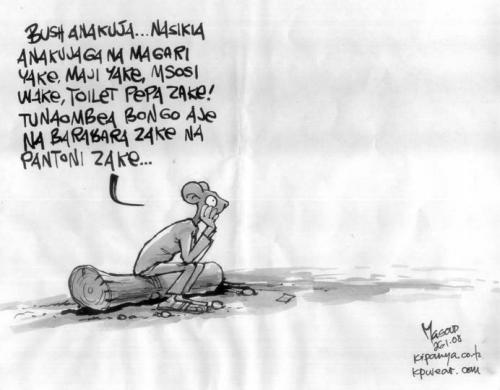 BUSH ANAKUJA...NASIKIA
ANAKUJAGA NA MAGARI
YAKE, MAJI YAKE, MSOSI
WAKE, TOILET PEPA ZAKE!
TUNAOMBEA BONGO AJE
NA BARABARA ZAKE NA
PANTONI ZAKE...
Masoud
26.1.08
kipanya.co.tz
kpwear.com